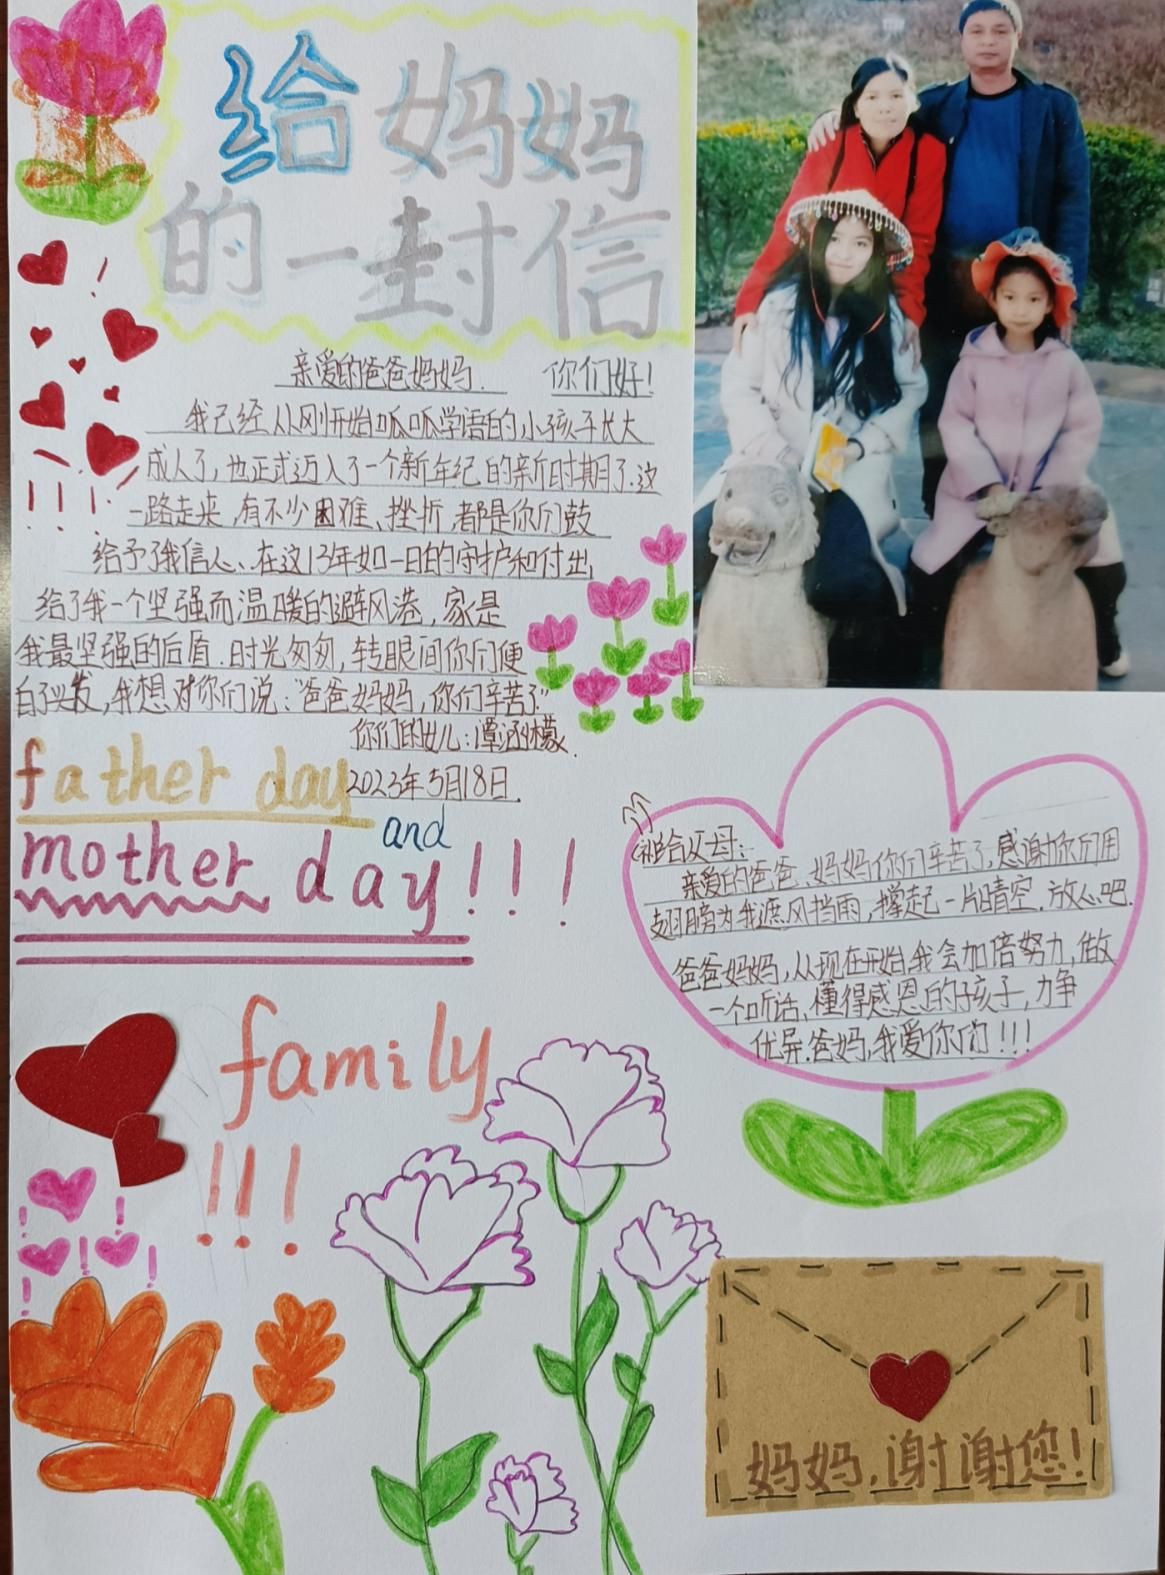 给妈妈
的一封信
亲爱的爸爸妈妈. 你们好!
我已经从刚开始呱呱学语的小孩子长大
成人了,也正式迈入了一个新年纪的新时期了.这
一路走来,有不少困难、挫折,都是你们鼓
给予了我信心、在这13年如一日的守护和付出,
给了我一个坚强而温暖的避风港,家是
我最坚强的后盾.时光匆匆,转眼间你们便
白了头发,我想对你们说:“爸爸妈妈,你们辛苦了”
你们的女儿:谭涵檬.
2023年5月18日.
father day
and
mother day!!!
给父母:
亲爱的爸爸、妈妈你们辛苦了,感谢你们用
翅膀为我遮风挡雨,撑起一片晴空.放心吧.
爸爸妈妈,从现在开始,我会加倍努力,做
一个听话、懂得感恩的孩子,力争
优异.爸妈,我爱你们!!!
family
!!!
妈妈,谢谢您!